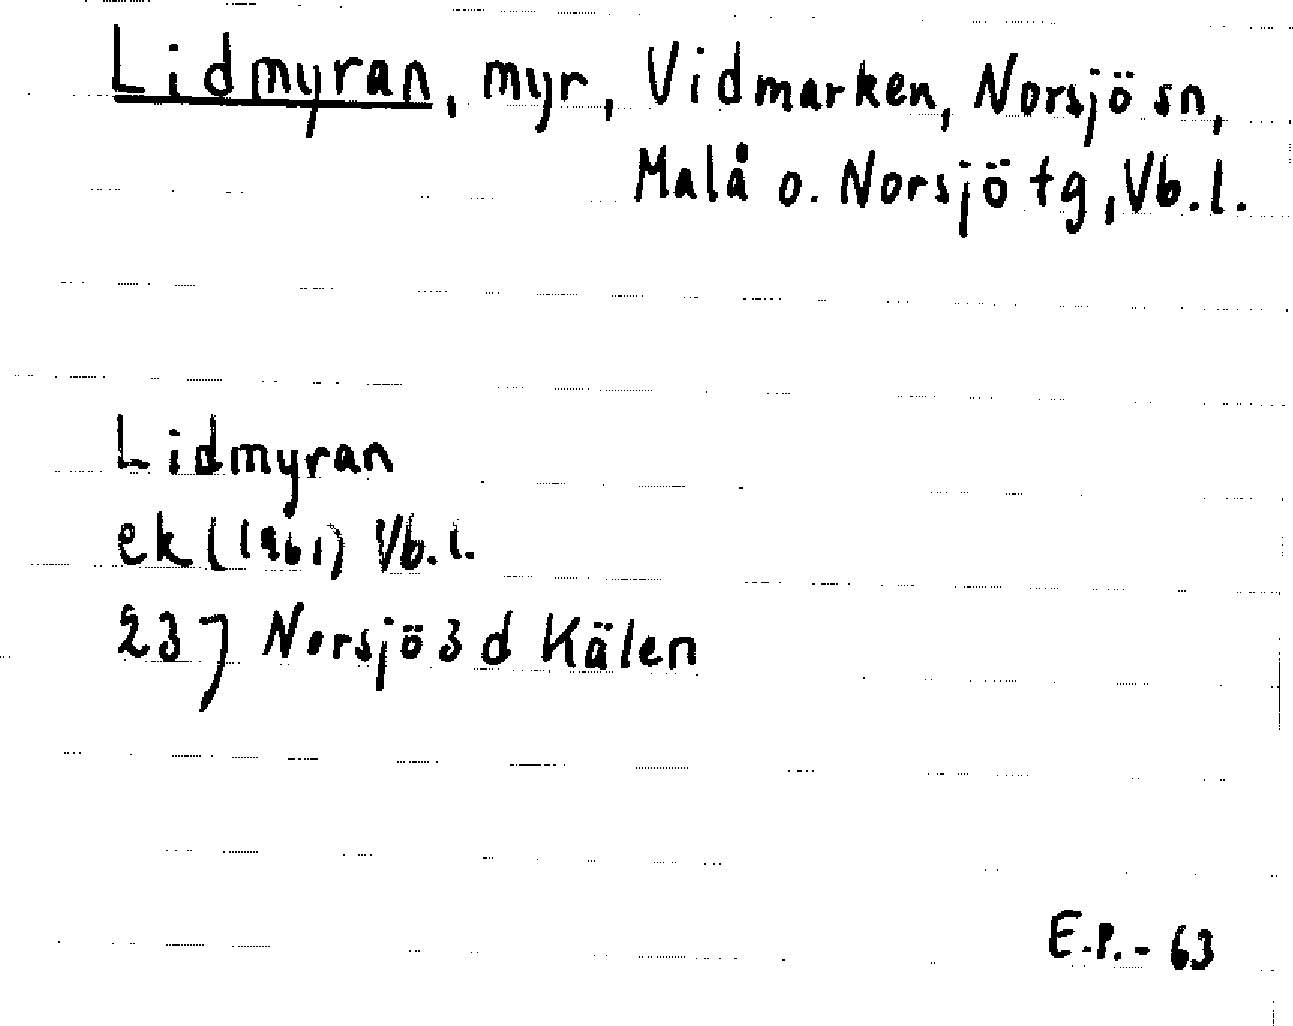 Lidmyran, myr, Vidmarken, Norsjö sn,
Malå o. Norsjö tg, Vb.l.
Lidmyran
ek (1961) Vb.l.
237 Norsjö 3 d Kälen
E.P.-63